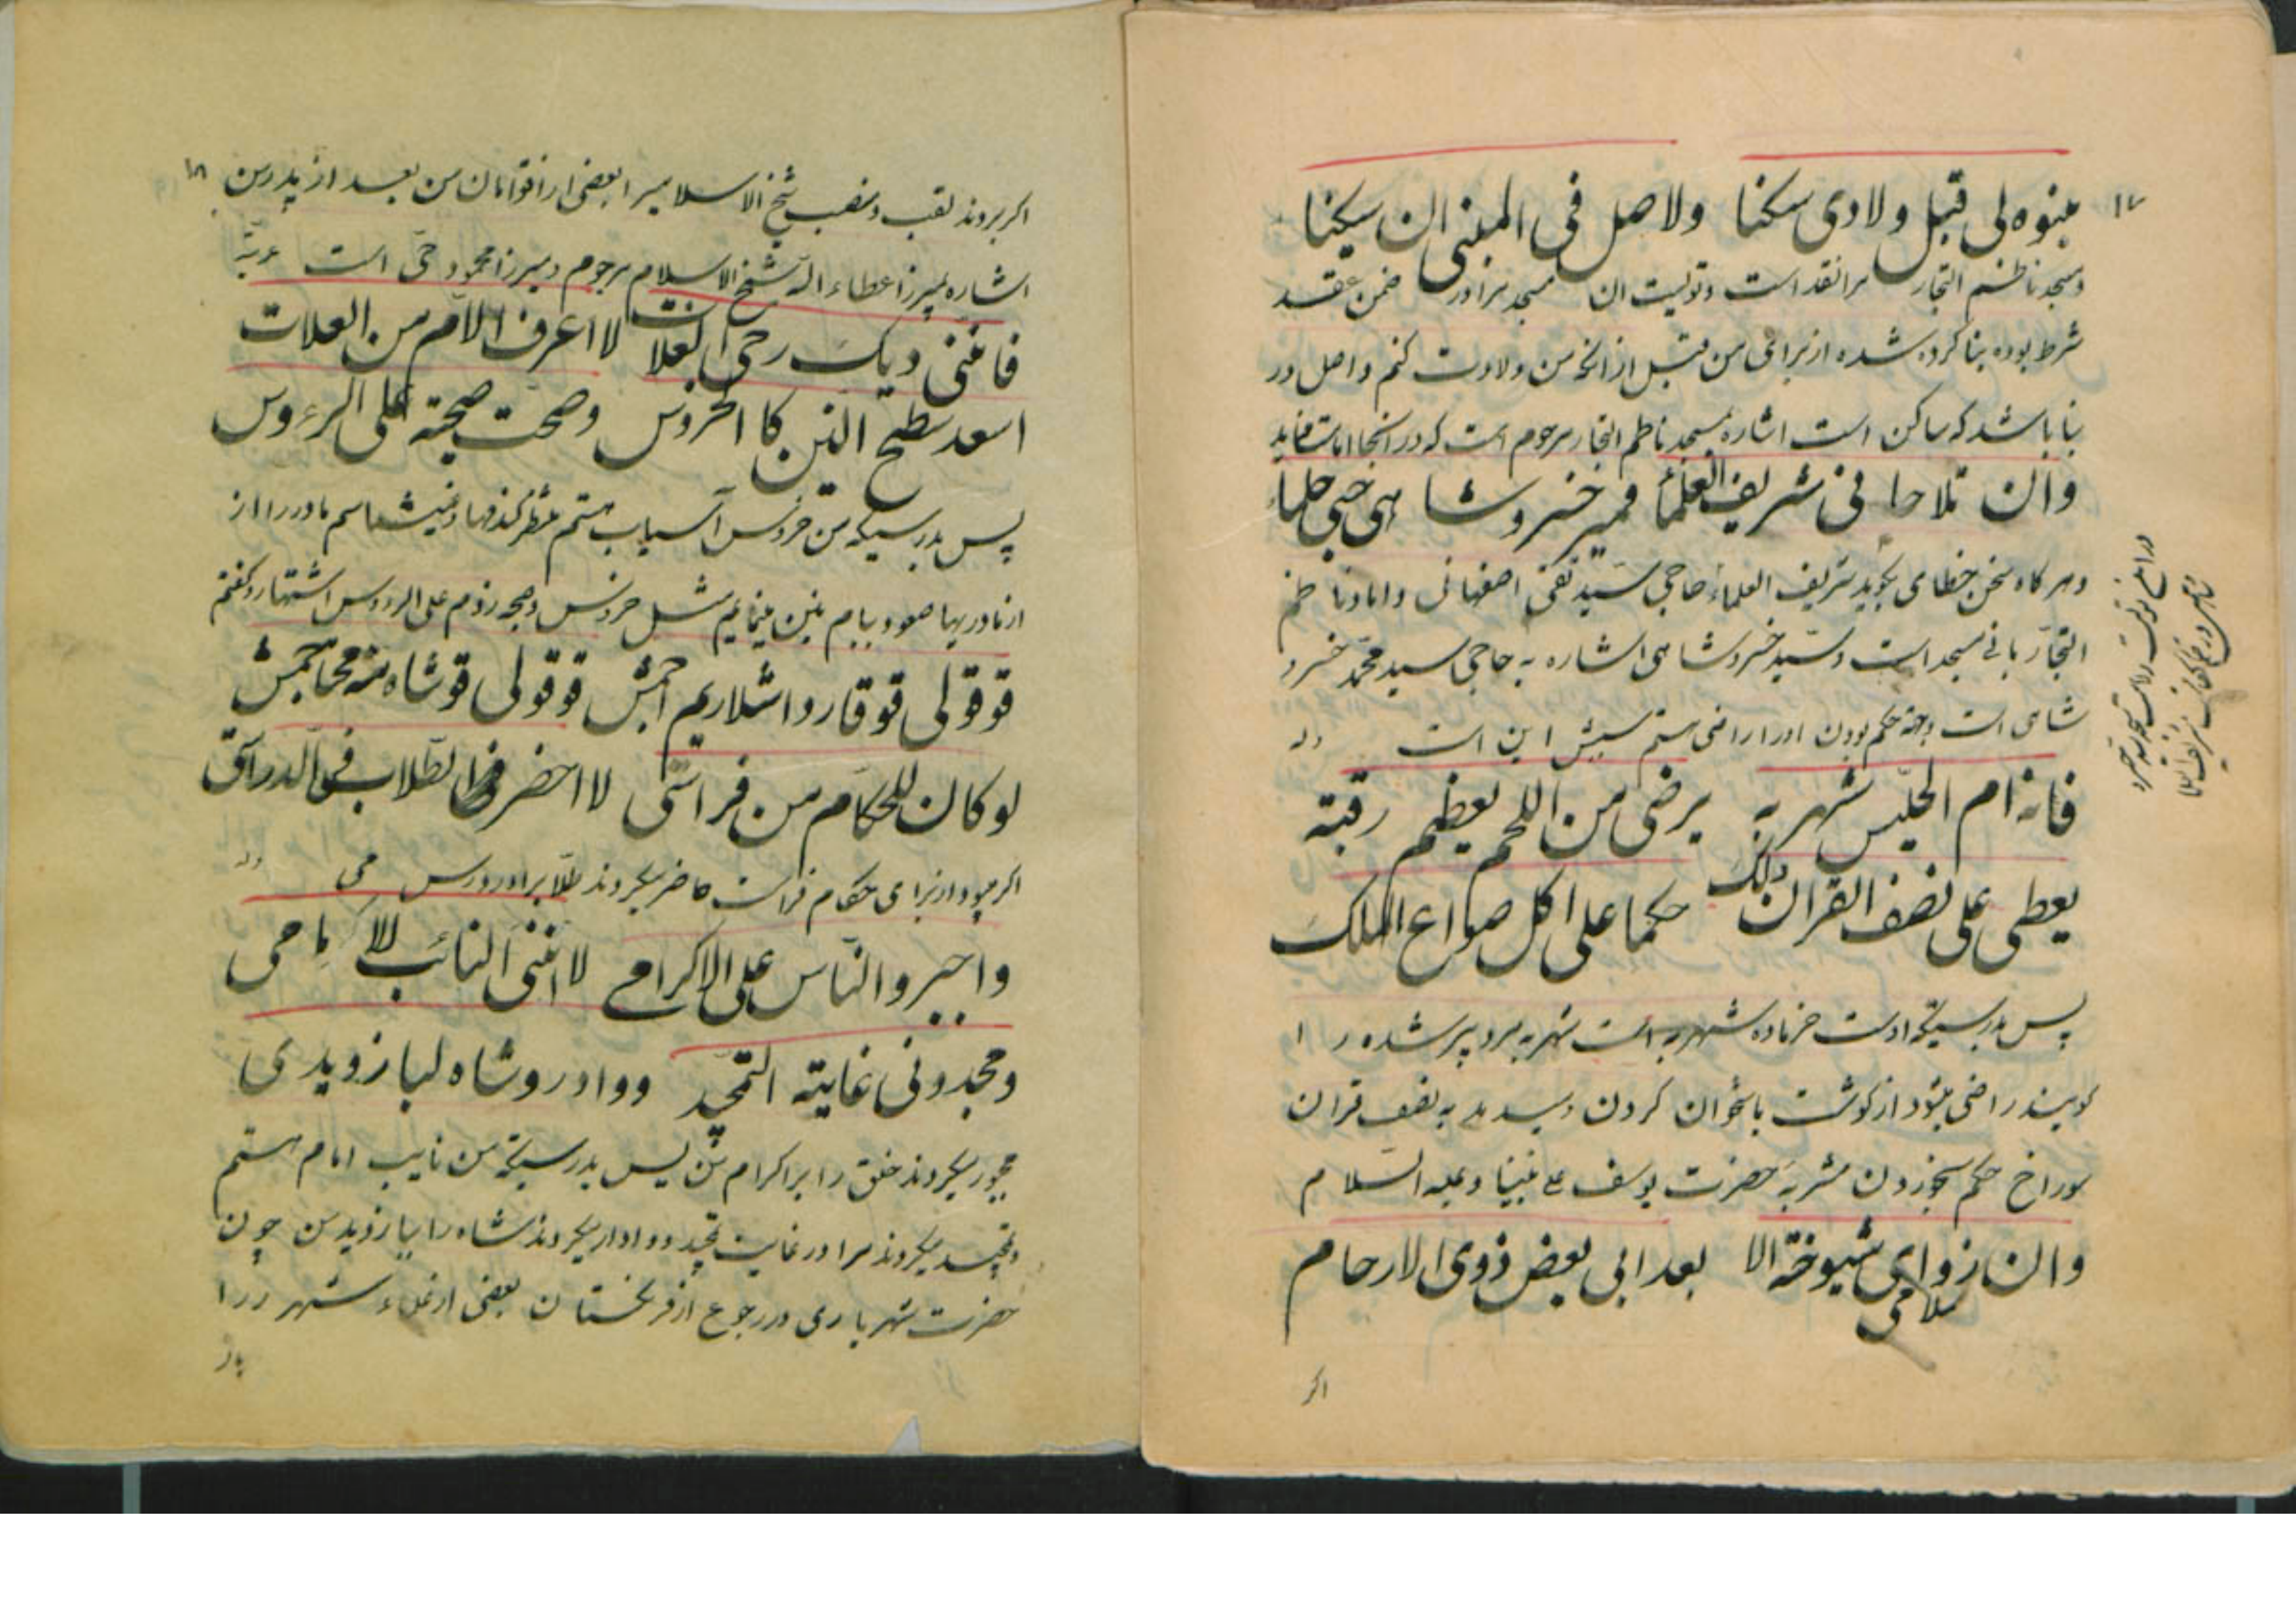 ۱۷
مبنوه لی قبل ولادی سکنا ولاصل فی المبنی ان سیکنا
ومسجد ناظم التجار مرا نقد است وتولیت ان مسجد مرا در ضمن عقد
شرط بوده بنا کرده شده از برای من قبل از انکه من ولادت کنم واصل در
بنا باشد که ساکن است اشاره بمسجد ناظم التجار مرحوم است که در انجا امامت مینماید
وان تلاحا فی شریف العلماء فمیر خسروشاهی حی حلماء
وهرکاه سخن خطای بکوید شریف العلماء حاجی سید تقی اصفهانی داماد ناظم
التجار بانی مسجد است وسید خسروشاهی اشاره به حاجی سید محمد خسرو
شاهی است وجه حکم بودن او را راضی هستم سببش این است وله
فانه ام الجلیس شهربه یرضی من اللحم بعظم رقبته
یعطی علی نصف القران ذلک حکما علی اکل صواع الملک
پس بدرستیکه اوست خرماده شهربه است شهربه مرد پیر شده را
کویند راضی میشود از کوشت باستخوان کردن ومیدهد به نصف قران
سوراخ حکم بخوردن مشربه حضرت یوسف علی نبینا وعلیه السلام
وان زوای شیوخة الاسلامی بعد ابی بعض ذوی الارحام
اکر
۱۸
اکر بروند لقب ومنصب شیخ الاسلامیرا بعضی از اقوامان من بعد از پدر من
اشاره بمیرزا عطاء الله شیخ الاسلام مرحوم ومیرزا محمود حی است عربیة
فاننی دیک رحی الغلات لا اعرف الام من العلات
اسعد سطح التین کا الخروس وصحت صیحة علی الرءوس
پس بدرستیکه من خروس آسیاب هستم منتظر کندمها ونمیشناسم مادر را از
از نادریها صعود ببام تین مینمایم مثل خروس وصیحه زدم علی الرءوس اشتهار وکفتم
قوقولی قوقارداشلاریم احمش قوقولی قوشاه منه محاحمش
لو کان للحکام من فراستی لا احضر الطلاب فی الدراستی
اکر میبود از برای حکام فراست حاضر میکردند طلاب را در درس می وله
واجبروا الناس علی الاکرامی لا اننی النائب للامامی
ومجدونی غایة التمجید وواد روشاه لبازویدی
مجبور میکردند خلق را بر اکرام من پس بدرستیکه من نایب امام هستم
وتمجید میکردند مرا در غایت تمجید ووادار میکردند شاه را ببازدید من چون
حضرت شهریاری در رجوع از فرنکستان بعضی از علماء شهر را
باز